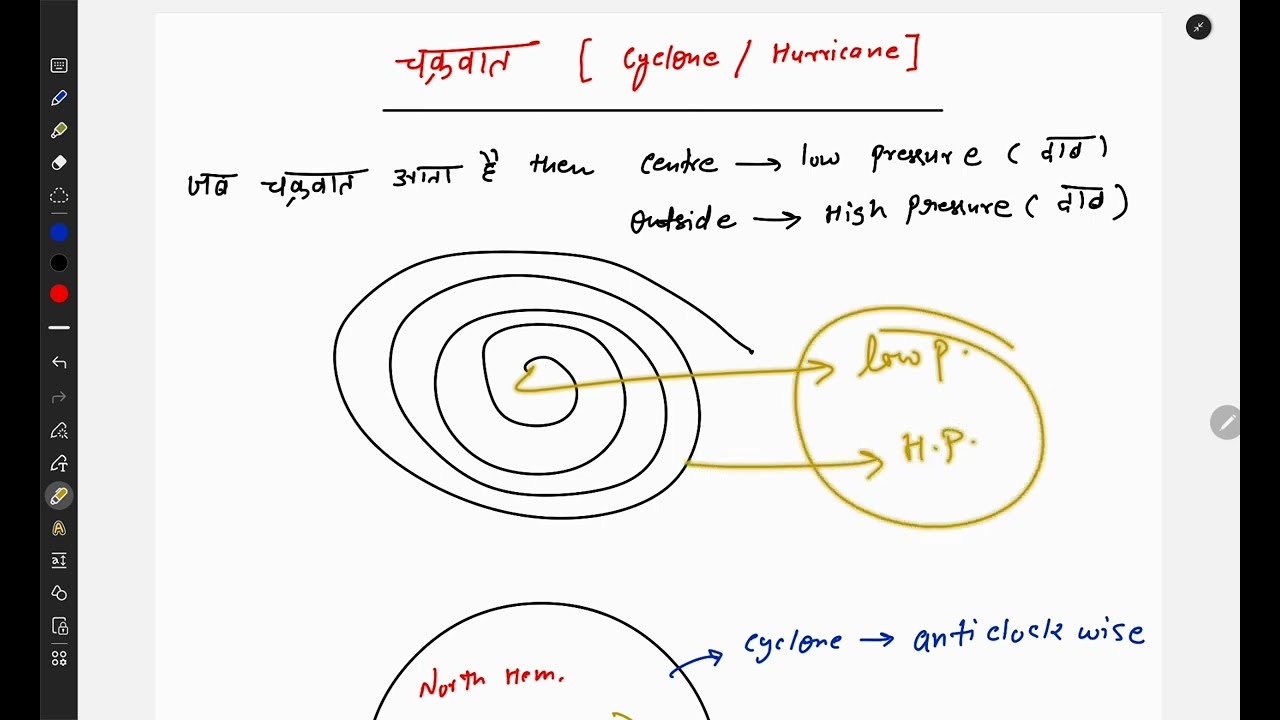 चक्रवात [ Cyclone / Hurricane ]
जब चक्रवात आता है then Centre → low pressure ( दाब )
Outside → High pressure ( दाब )
low p.
H.P.
Cyclone → anticlock wise
North Hem.